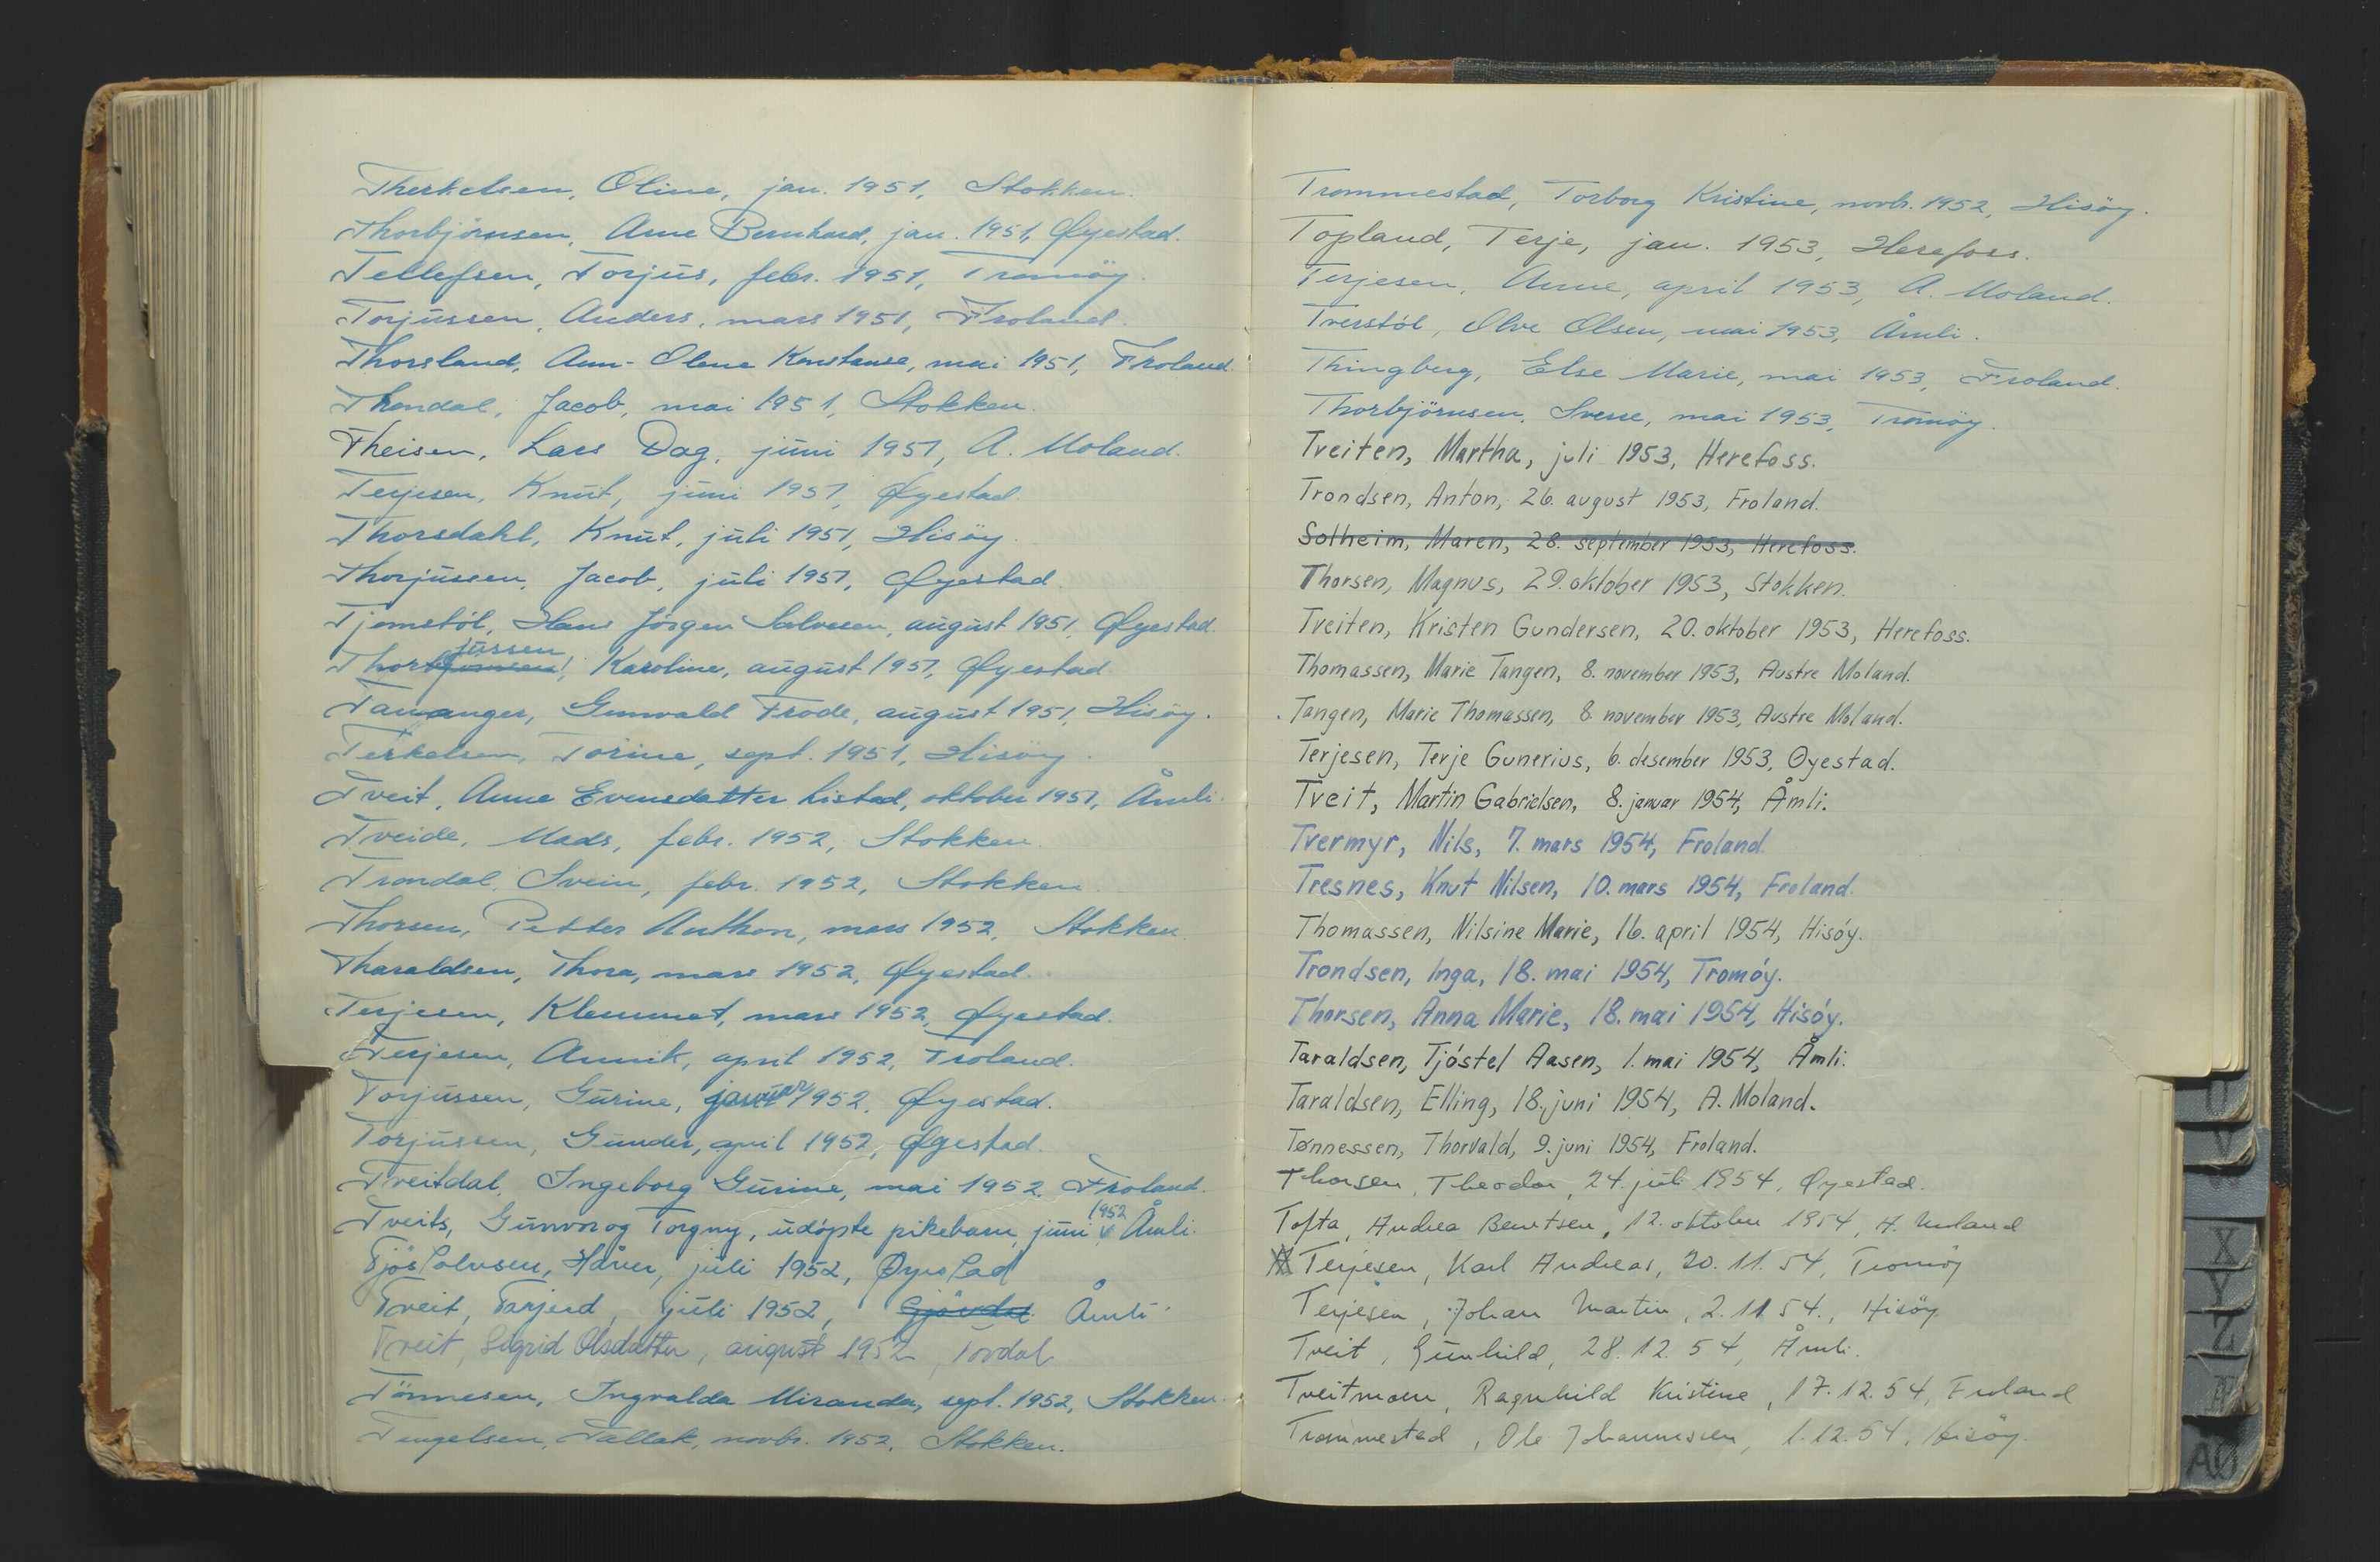 Therkelsen, Oline, jan. 1951, Stokken.
Thorbjörnsen, Arne Bernhard, jan. 1951, Øyestad.
Tellefsen, Torjus, febr. 1951, Tromöy.
Torjussen, Anders, mars 1951, Froland.
Thorsland, Ann-Olene Konstanse, mai 1951, Froland.
Thondal, Jacob, mai 1951, Stokken.
Theisen, Lars Dag, juni 1951, A. Moland.
Terjesen, Knut, juni 1951, Øyestad.
Thorsdahl, Knut, juli 1951, Hisöy.
Thorjussen, Jacob, juli 1951, Øyestad.
Tjomstöl, Hans Jörgen Salvesen, august 1951, Øyestad.
jussen
Thor, Karoline, august 1951, Øyestad.
Tananger, Gunvald Frode, august 1951, Hisöy.
Terkelsen, Torine, sept. 1951, Hisöy.
Tveit, Anne Evensdatter Listad, oktober 1951, Åmli.
Tveide, Mads, febr. 1952, Stokken.
Trondal, Svein, febr. 1952, Stokken.
Thorsen, Petter Anthon, mars 1952, Stokken.
Tharaldsen, Thora, mars 1952, Øyestad.
Terjesen, Klemmet, mars 1952, Øyestad.
Terjesen, Annik, april 1952, Froland.
Torjussen, Gurine, januar 1952, Øyestad.
Torjussen, Gunder, april 1952, Øyestad.
Tveitdal, Ingeborg Gurine, mai 1952, Froland.
1952
Tveits, Gunvor og Torgny, udöpte pikebarn, juni, Åmli.
Tjöstolvsen, Håver, juli 1952, Øyestad
Tveit, Tarjerd, juli 1952, Gjövdal Åmli
Tveit, Sigrid Olsdatter, august 1952, Tovdal
Tönnesen, Ingvalda Miranda, sept. 1952, Stokken.
Tengelsen, Tallak, novbr. 1952, Stokken.
Trommestad, Torborg Kristine, novbr. 1952, Hisöy.
Topland, Terje, jan. 1953, Herefoss.
Terjesen, Anne, april 1953, A. Moland.
Tverstöl, Olve Olsen, mai 1953, Åmli.
Thingberg, Else Marie, mai 1953, Froland.
Thorbjörnsen, Sverre, mai 1953, Tromöy.
Treiten, Martha, juli 1953, Herefoss.
Trondsen, Anton, 26. august 1953, Froland.
Solheim, Maren, 28. september 1953, Herefoss.
Thorsen, Magnus, 29. oktober 1953, Stokken.
Treiten, Kristen Gundersen, 20. oktober 1953, Herefoss.
Thomassen, Marie Tangen, 8. november 1953, Austre Moland.
Tangen, Marie Thomassen, 8. november 1953, Austre Moland.
Terjesen, Terje Gunerius, 6. desember 1953, Øyestad.
Tveit, Martin Gabrielsen, 8. januar 1954, Åmli.
Tvermyr, Nils, 7. mars 1954, Froland.
Tresnes, Knut Nilsen, 10. mars 1954, Froland.
Thomassen, Nilsine Marie, 16. april 1954, Hisóy.
Trondsen, Inga, 18. mai 1954, Tromóy.
Thorsen, Anna Marie, 18. mai 1954, Hisóy.
Taraldsen, Tjóstel Aasen, 1. mai 1954, Åmli.
Taraldsen, Elling, 18. juni 1954, A. Moland.
Tønnessen, Thorvald, 9. juni 1954, Froland.
Thorsen, Theodor, 24. juli 1954, Øyestad.
Tofta, Andrea Berntsen, 12. oktober 1954, A. Moland
Terjesen, Karl Andreas, 20.11.54, Tromöy
Terjesen, Johan Martin, 2.11.54., Hisöy
Tveit, Gunhild, 28.12.54, Åmli.
Tveitmoen, Ragnhild Kristine, 17.12.54, Froland
Trommestad, Ole Johannessen, 1.12.54, Hisöy.
U
V
X
Y
Z
Æ
AØ